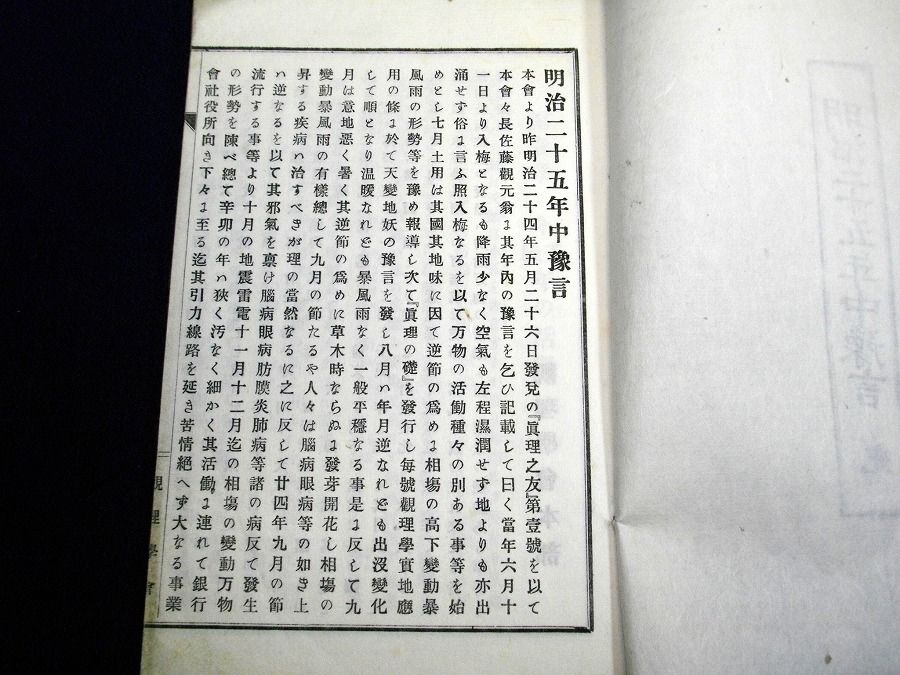 明治二十五年中豫言
本會より昨明治二十四年五月二十六日發兌の『眞理之友』第壹號を以て
本會々長佐藤觀元翁は其年內の豫言を乞ひ記載して曰く當年六月十
一日より入梅となるも降雨少なく空氣も左程濕潤せず地よりも亦出
涌せず俗に言ふ照入梅なるを以て万物の活働種々の別ある事等を始
めとし七月土用は其國其地味に因て逆節の爲めに相塲の高下變動暴
風雨の形勢等を豫め報導し次て『眞理の礎』を發行し每號觀理學實地應
用の條に於て天變地妖の豫言を發し八月ハ年月逆なれども出沒變化
して順となり温暖なれども暴風雨なく一般平穩なる事是に反して九
月は意地悪く暑く其逆節の爲めに草木時ならぬに發芽開花し相塲の
變動暴風雨の有樣總して九月の節たるや人々は腦病眼病等の如き上
昇する疾病ハ治すべきが理の當然なるに之に反して廿四年九月の節
ハ逆なるを以て其邪氣を禀け腦病眼病肪膜炎肺病等諸の病反て發生
流行する事等より十月の地震雷電十一月十二月迄の相塲の變動万物
の形勢を陳べ總て辛卯の年ハ狹く汚なく細かく其活働に連れて銀行
會社役所向き下々に至る迄其引力線路を延き苦情絕へず大なる事業
觀理學會